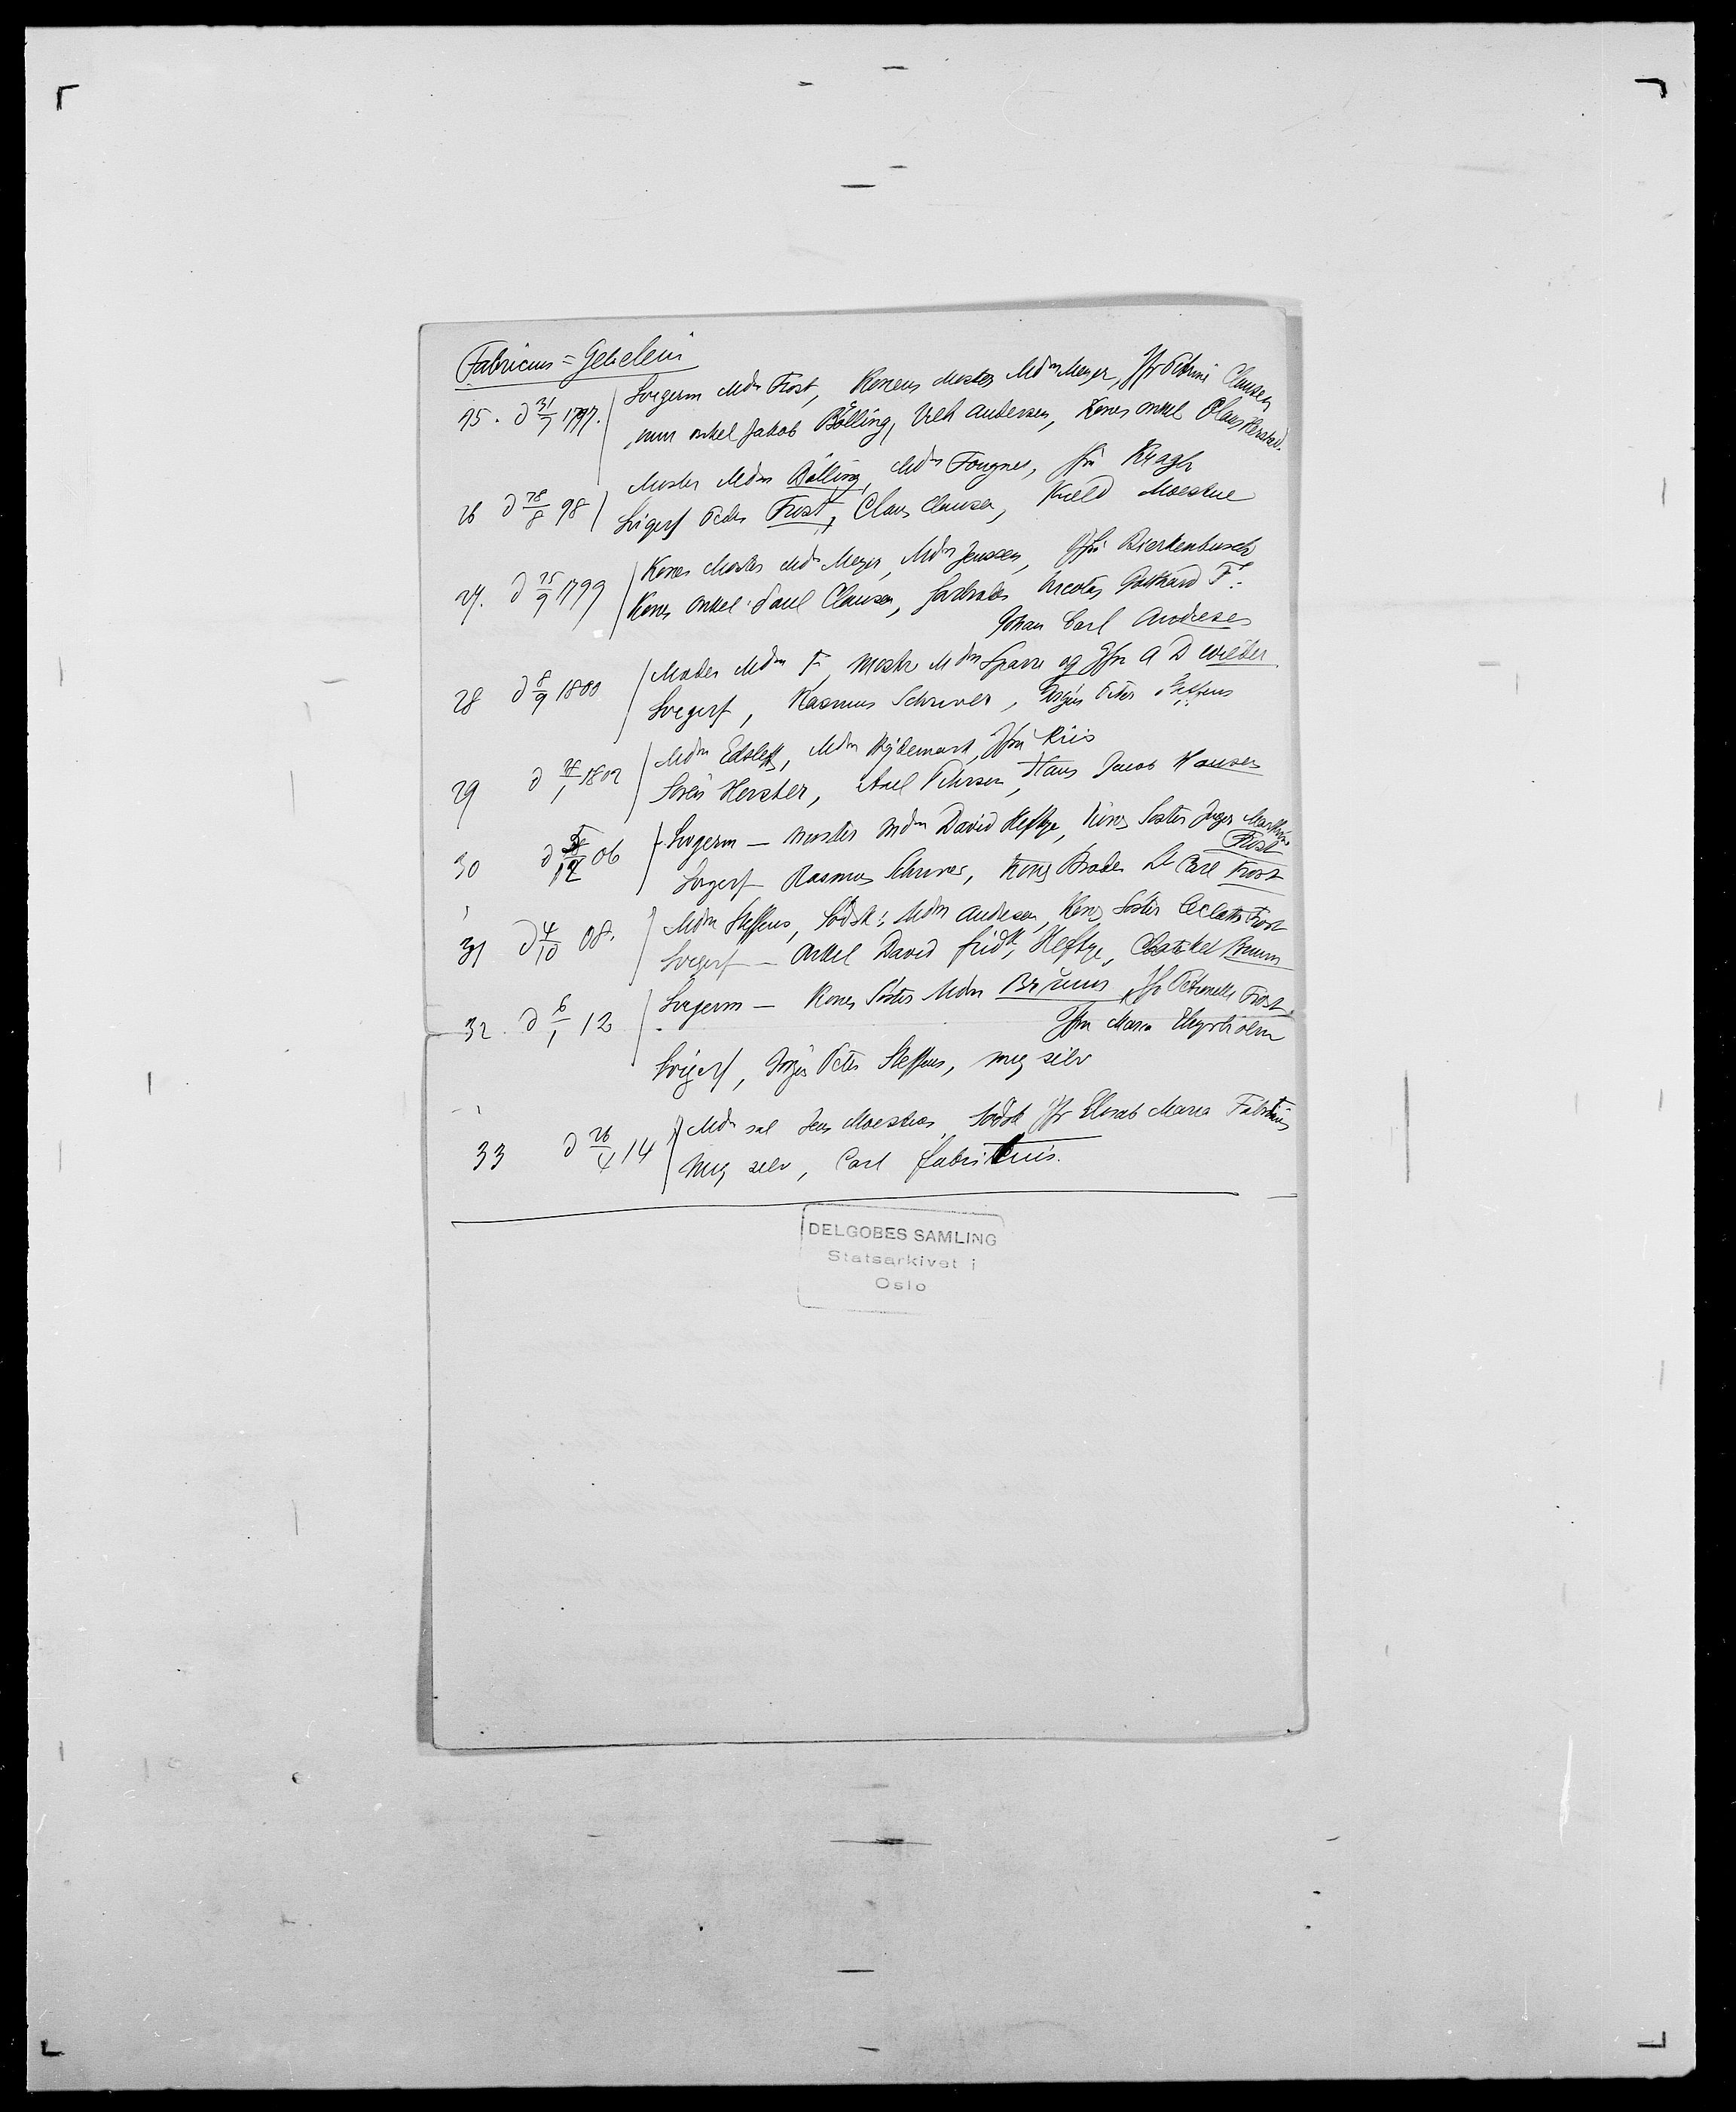 Fabricius = Gebelein
25. d 31/7 1797. Svigerm Mdm Frost, Konens Moster Mdm Meyer, Jfr Petrine Clausen
min onkel Jakob Bölling, Veh Andersen, Kones onkel Claus
26 d 28/8 98 Moster Mdm Bölling, Mdm Fougner, Jfr Kragh
Svigerf Peder Frost, Claus Clausen, Kield Moestue
27. d 25/9 1799 Kones Moster Mdm Meyer, Mdm Jenssen, Jfr Bierkenbusch
Kones Onkel Paul Clausen, Nicolay Gotthard F:
Johan Carl Andresen
28 d 8/9 1800 Moder Mdm F, Moster Mdm Sparre og Jfr A D Wilder
Svigerf, Rasmus Schriver, Jörgen Peter Steffens
29 d 1/1802 Mdm, Mdm, Jfr Riis
Sören Herster, Axel Petersen, Hans Jacob Hansen
30 d 12 06 Svigerm — Moster Mdm David Heftye, Kones Søster Inger Marthine
Frost
Svigerf Rasmus Schriver, Kones Broder Dr Carl Frost
31 d 4/10 08. Mdm Steffens, Södsk: Mdm Andresen, Kones Søster Frost
Svigerf — Onkel David fridk Heftye, Bruun
32. d 6/1 12 Svigerm — Kones Søster Mdm Brüun, Jfr Petronelle Frost.
Jfr Maria
Svigerf, Jörgen Peter Steffens, meg selv
33 d 26/4 14 Mdm sal Jens Moestues, Södsk Jfr Elisab Maria Fabritius
Meg selv, Carl Fabritius.
DELGOBES SAMLING
Statsarkivet i
Oslo